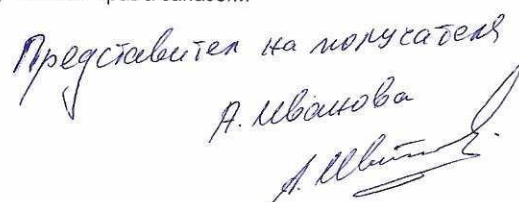 Представител на получателя
А. Иванова
А. Иван